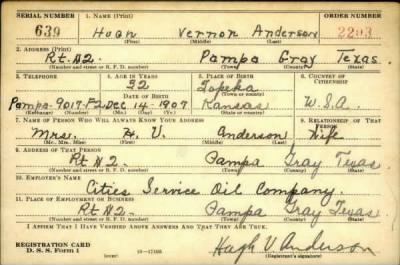 SERIAL NUMBER 1. NAME (Print) ORDER NUMBER
639 Hugh Vernon Anderson 2293
(First) (Middle) (Last)
2. ADDRESS (Print)
Rt. #2. Pampa Gray Texas.
(Number and street or R. F. D. number) (Town) (County) (State)
3. TELEPHONE 4. AGE IN YEARS 5. PLACE OF BIRTH 6. COUNTRY OF CITIZENSHIP
32 Topeka
DATE OF BIRTH (Town or county)
Pampa-9017-F2 Dec 14-1907 Kansas U.S.A.
(Exchange) (Number) (Mo.) (Day) (Yr.) (State or country)
7. NAME OF PERSON WHO WILL ALWAYS KNOW YOUR ADDRESS 8. RELATIONSHIP OF THAT PERSON
Mrs. H. V. Anderson Wife
(Mr., Mrs., Miss) (First) (Middle) (Last)
9. ADDRESS OF THAT PERSON
Rt #2 Pampa Gray Texas
(Number and street or R. F. D. number) (Town) (County) (State)
10. EMPLOYER'S NAME
Cities Service Oil Company.
11. PLACE OF EMPLOYMENT OR BUSINESS
Rt #2. Pampa Gray Texas.
(Number and street or R. F. D. number) (Town) (County) (State)
I AFFIRM THAT I HAVE VERIFIED ABOVE ANSWERS AND THAT THEY ARE TRUE.
REGISTRATION CARD
D. S. S. Form 1 (over) 16-17105 Hugh V. Anderson
(Registrant's signature)